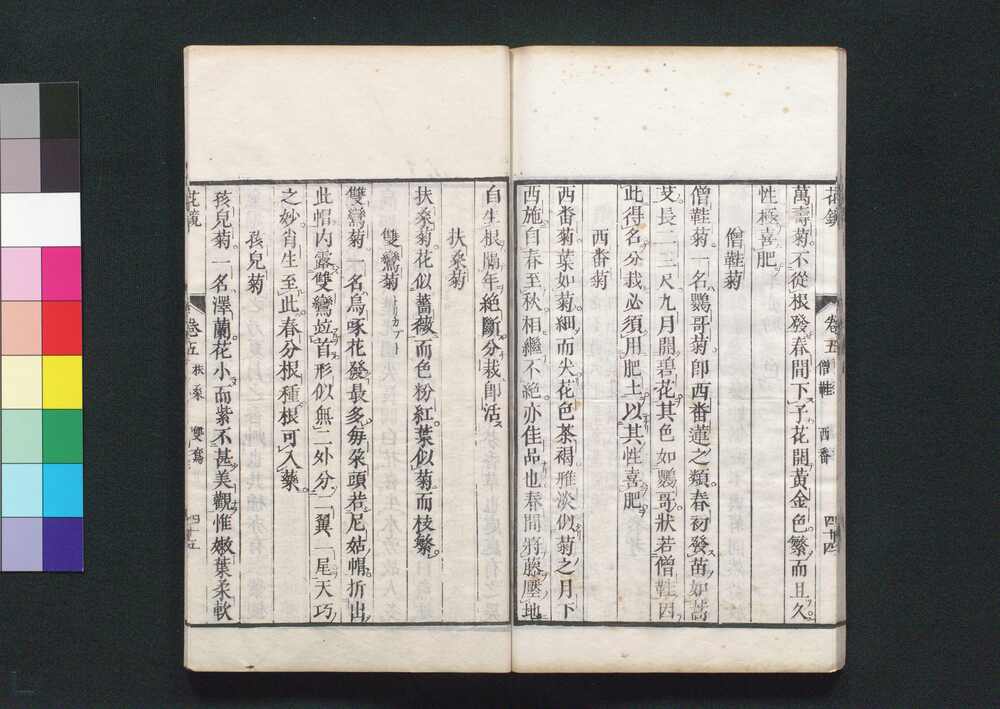 花鏡 卷五 僧鞋 西番 四十四
萬壽菊不從根發春間下子花開黃金色繁而且久
性極喜肥
僧鞋菊
僧鞋菊一名鸚哥菊卽西番蓮之類春初發苗如蒿
艾長二三尺九月開碧花其色如鸚哥狀若僧鞋因
此得名分栽必須用肥土以其性喜肥
西番菊
西番菊葉如菊細而尖花色茶褐雅淡似菊之月下
西施自春至秋相繼不絕亦佳品也春間將藤壓地
自生根隔年絕斷分栽卽活
扶桑菊
扶桑菊花似薔薇而色粉紅葉似菊而枝繁
雙鸞菊
雙鸞菊一名烏啄花發最多每朶頭若尼姑帽折出
此帽内露雙鸞並首形似無二外分二翼一尾天巧
之妙肖生至此春分根種根可入藥
孩兒菊
孩兒菊一名澤蘭花小而紫不甚美觀惟嫩葉柔軟
花鏡 卷五 扶桑 雙鸞 四十五